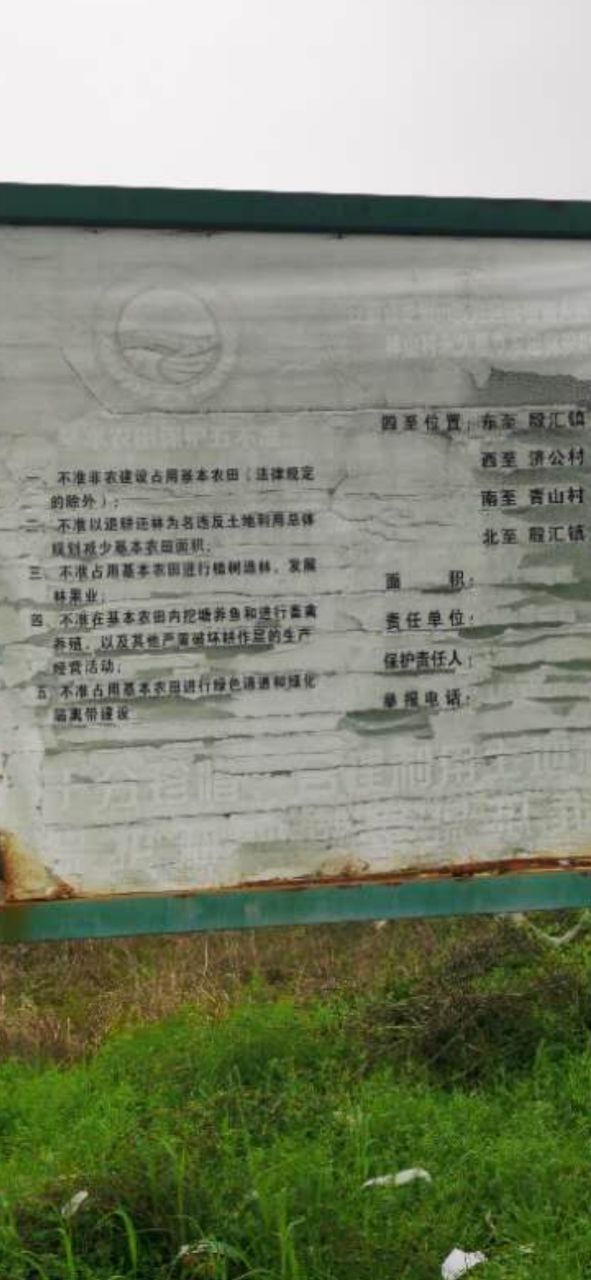 基本农田保护五不准
一、不准非农建设占用基本农田（法律规定
的除外）；
二、不准以退耕还林为名违反土地利用总体
规划减少基本农田面积；
三、不准占用基本农田进行植树造林、发展
林果业；
四、不准在基本农田内挖塘养鱼和进行畜禽
养殖，以及其他严重破坏耕作层的生产
经营活动；
五、不准占用基本农田进行绿色通道和绿化
隔离带建设
四至位置：东至 殷汇镇
西至 济公村
南至 青山村
北至 殷汇镇
面 积：
责任单位：
保护责任人：
举报电话：
十分珍惜 合理利用土地